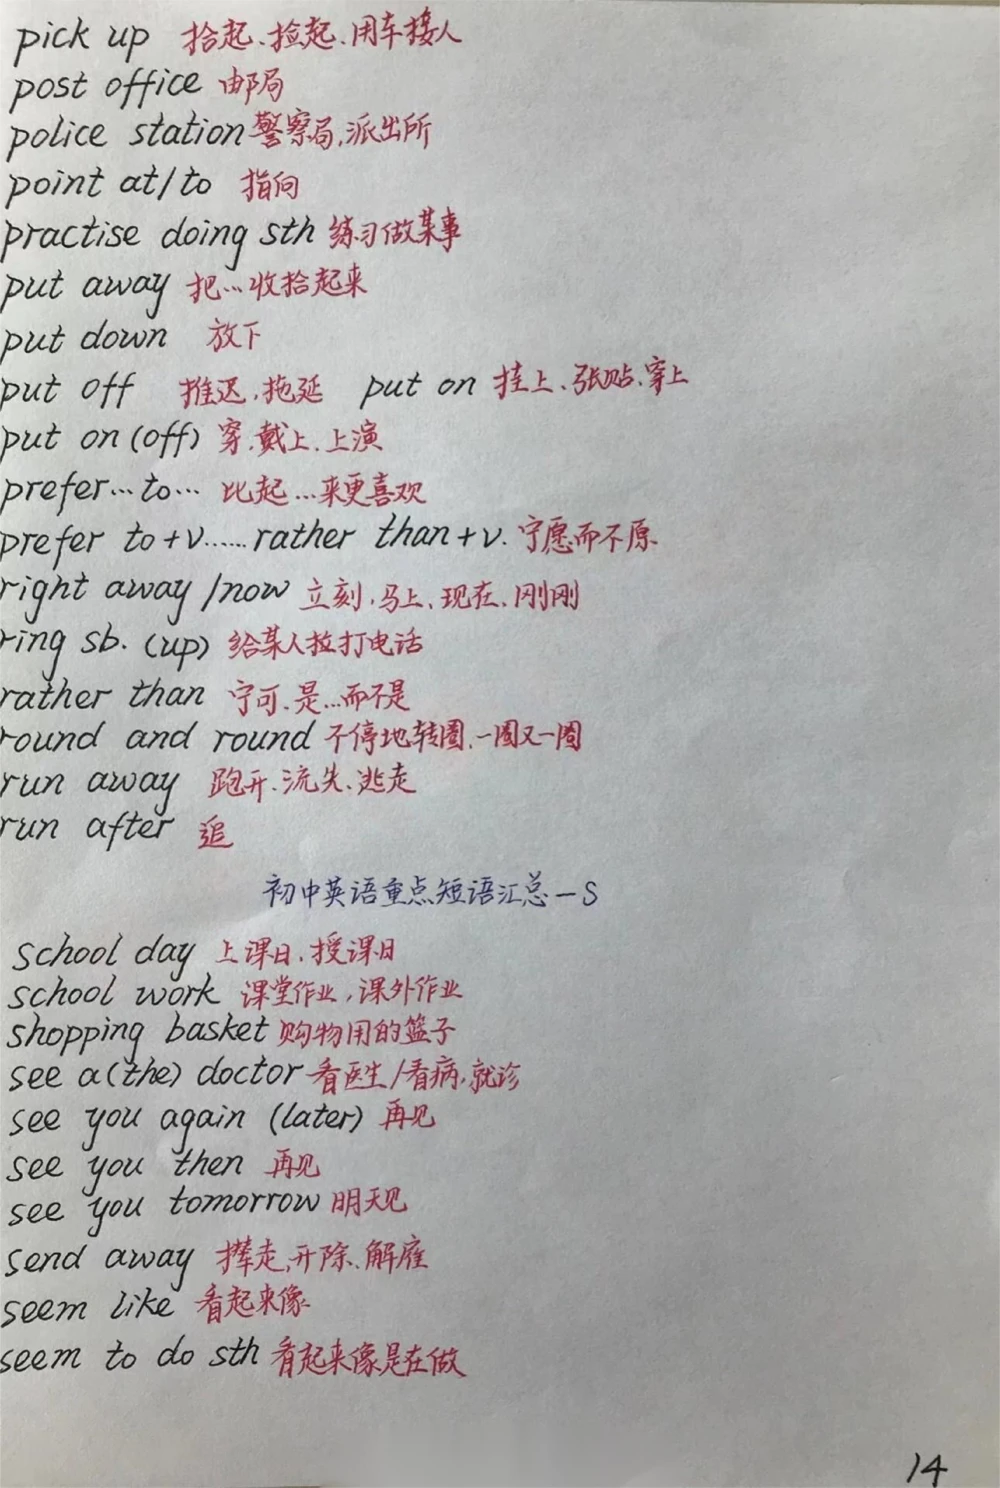 pick up 拾起、捡起、用车接人
post office 邮局
police station 警察局,派出所
point at/to 指向
practise doing sth 练习做某事
put away 把…收拾起来
put down 放下
put off 推迟,拖延 put on 挂上、张贴、穿上
put on (off) 穿,戴上、上演
prefer…to… 比起…来更喜欢
prefer to+v……rather than+v. 宁愿而不原
right away /now 立刻,马上、现在、刚刚
ring sb. (up) 给某人拉打电话
rather than 宁可、是…而不是
round and round 不停地转圈,一圈又一圈
run away 跑开、流失、逃走
run after 追
初中英语重点短语汇总—S
school day 上课日,授课日
school work 课堂作业,课外作业
shopping basket 购物用的篮子
see a(the) doctor 看医生/看病,就诊
see you again (later) 再见
see you then 再见
see you tomorrow 明天见
send away 撵走,开除、解雇
seem like 看起来像
seem to do sth 看起来像是在做
14